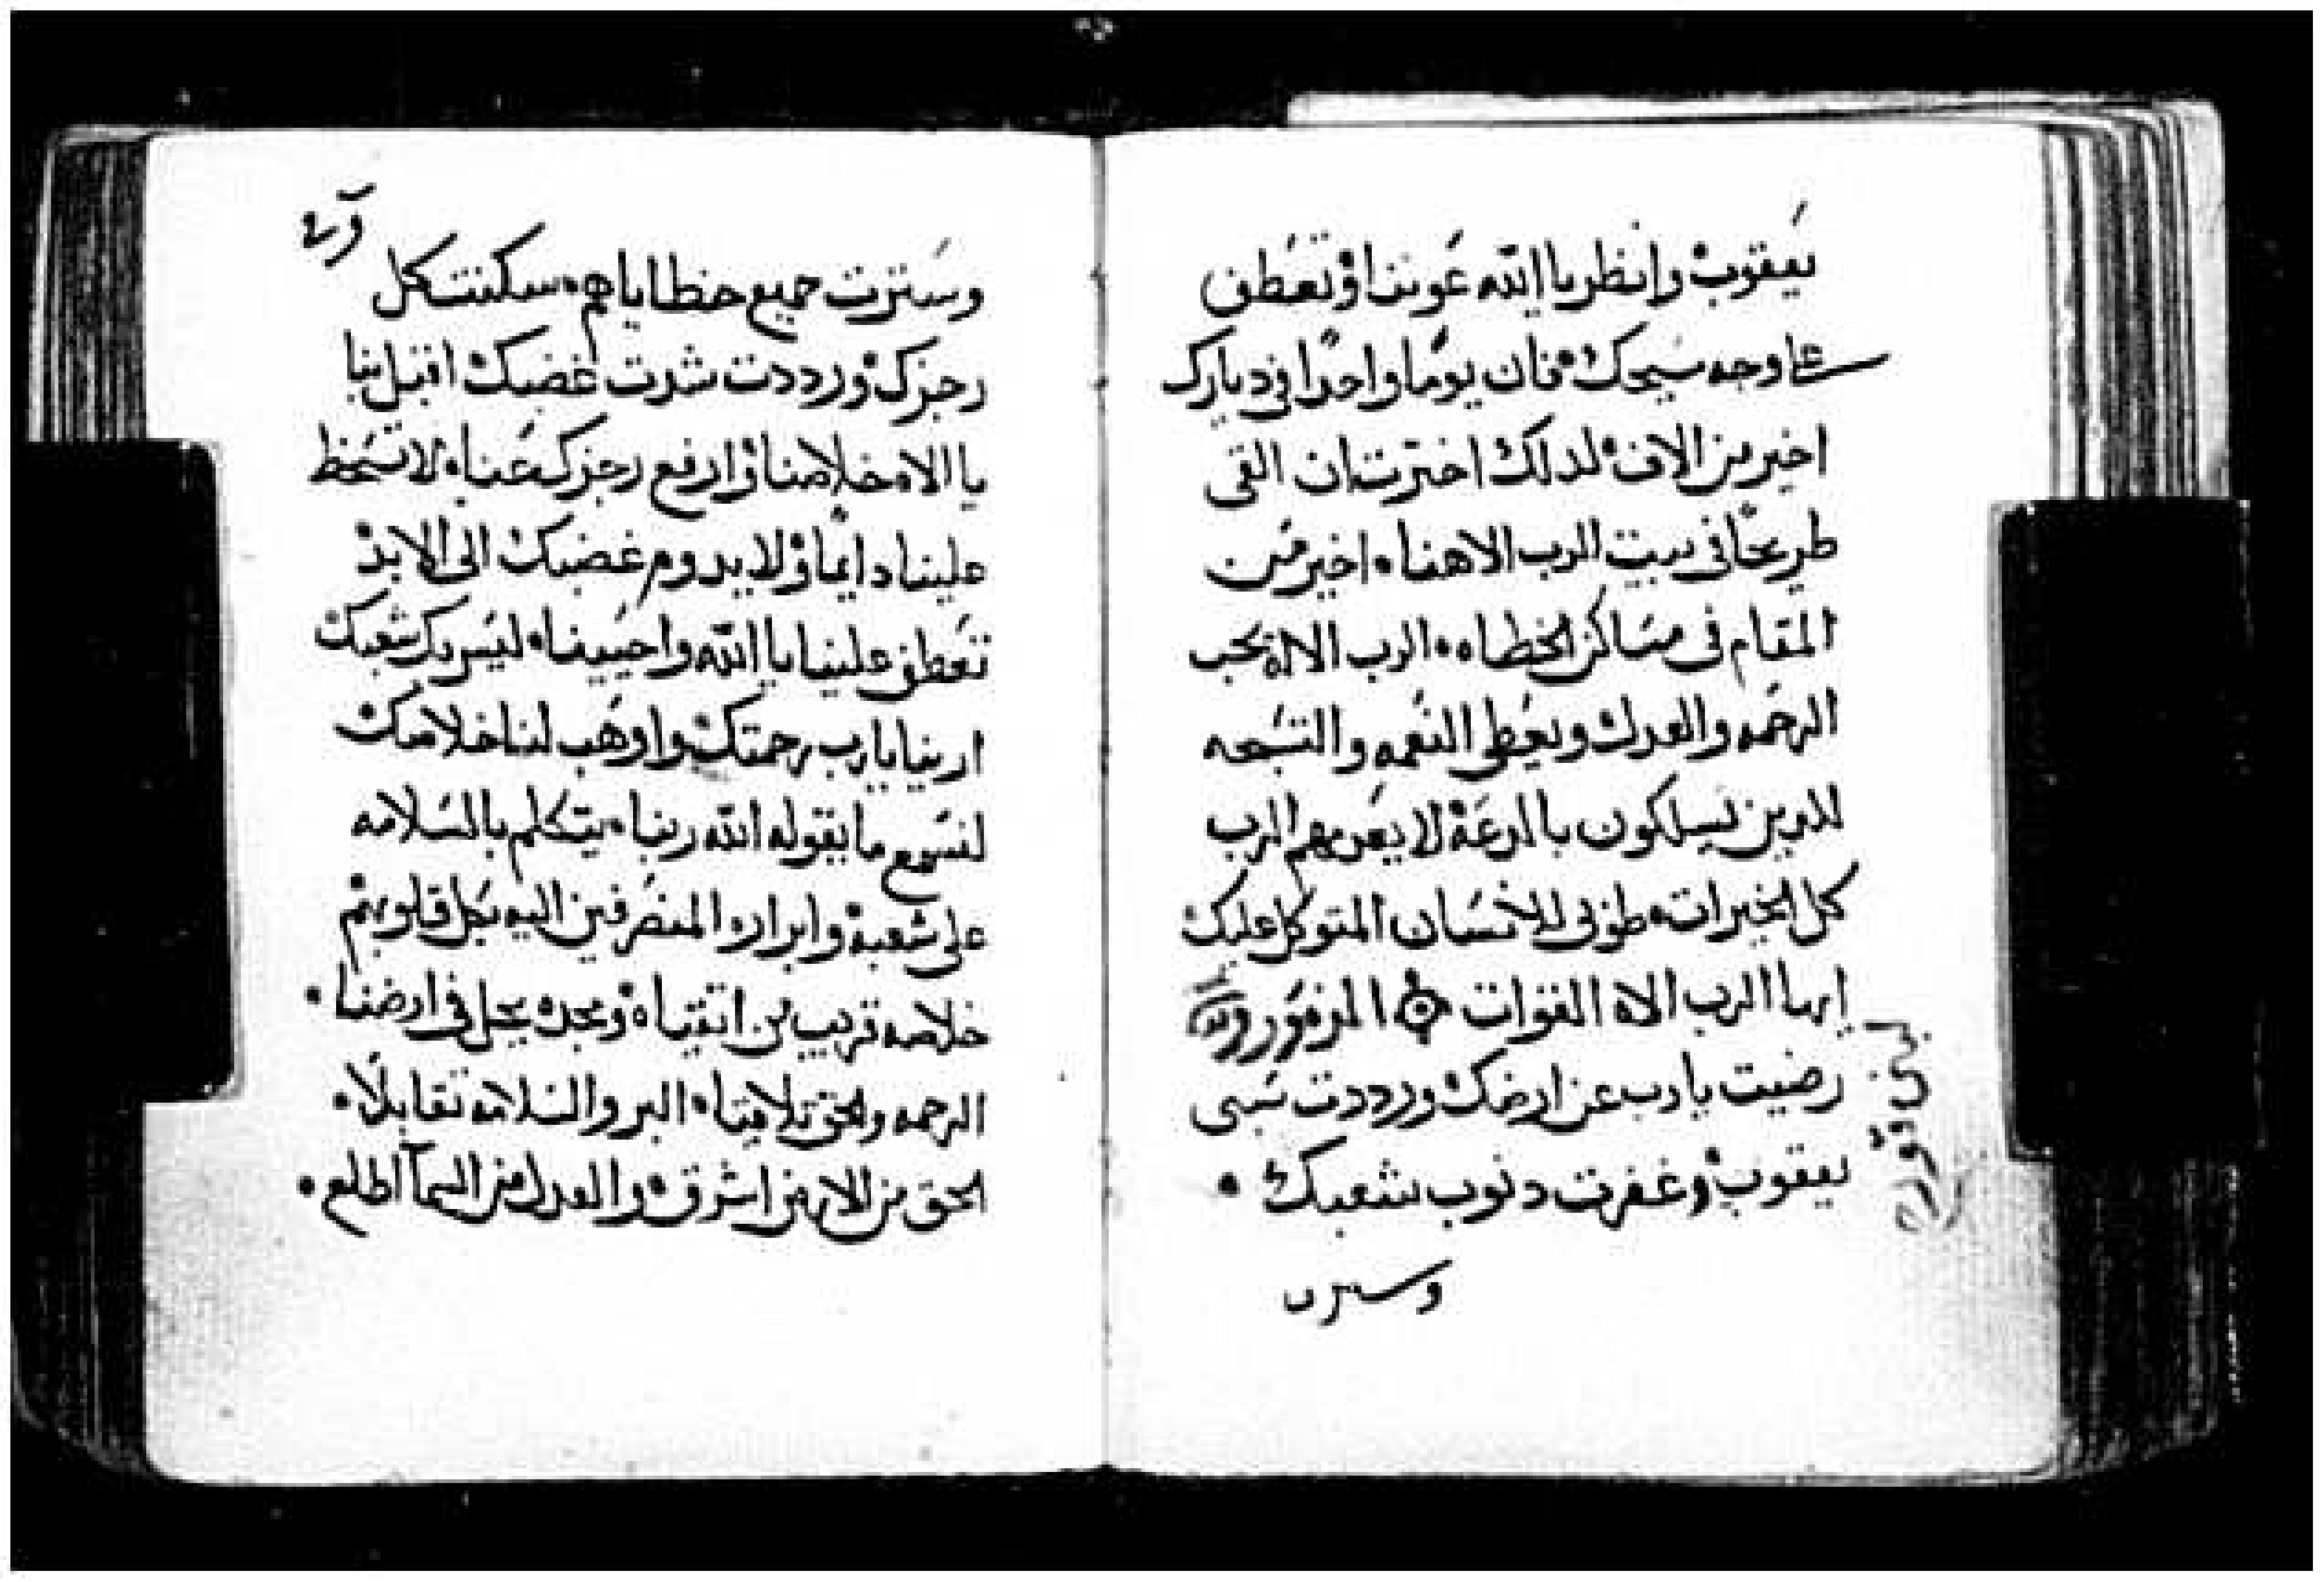 يعقوب وانظر يا الله عوننا وتعطف
على وجه مسيحك فان يوما واحدا في ديارك
اخير من الاف لدلك اخترت ان القى
طريحا في بيت الرب الاهنا اخير من
المقام في مساكن الخطاه الرب الاله يحب
الرحمه والعدل ويعطي النعمه والتسبحه
للدين يسلكون بالدعة لا يعدمهم الرب
كل الخيرات طوبى للانسان المتوكل عليك
ايها الرب الاه القوات المزمور
رضيت يا رب عن ارضك ورددت سبي
يعقوب وغفرت دنوب شعبك
وسترت
وسترت جميع خطاياهم سكنت كل
رجزك ورددت شدت غضبك اقبل بنا
يا الاه خلاصنا وارفع رجزك عنا لا تسخط
علينا دايما ولا يدوم غضبك الى الابد
تعطف علينا يا الله واحيينا ليسر بك شعبك
ارينا يا رب رحمتك واوهب لنا خلاصك
لنسمع ما يقوله الله ربنا يتكلم بالسلامه
على شعبه وابراره المنصرفين اليه بكل قلوبهم
خلاصه قريب من اتقياه ومجده يحل في ارضنا
الرحمه والحق تلاقيا البر والسلامه تقابلا
الحق من الارض اشرق والعدل من السما اطلع